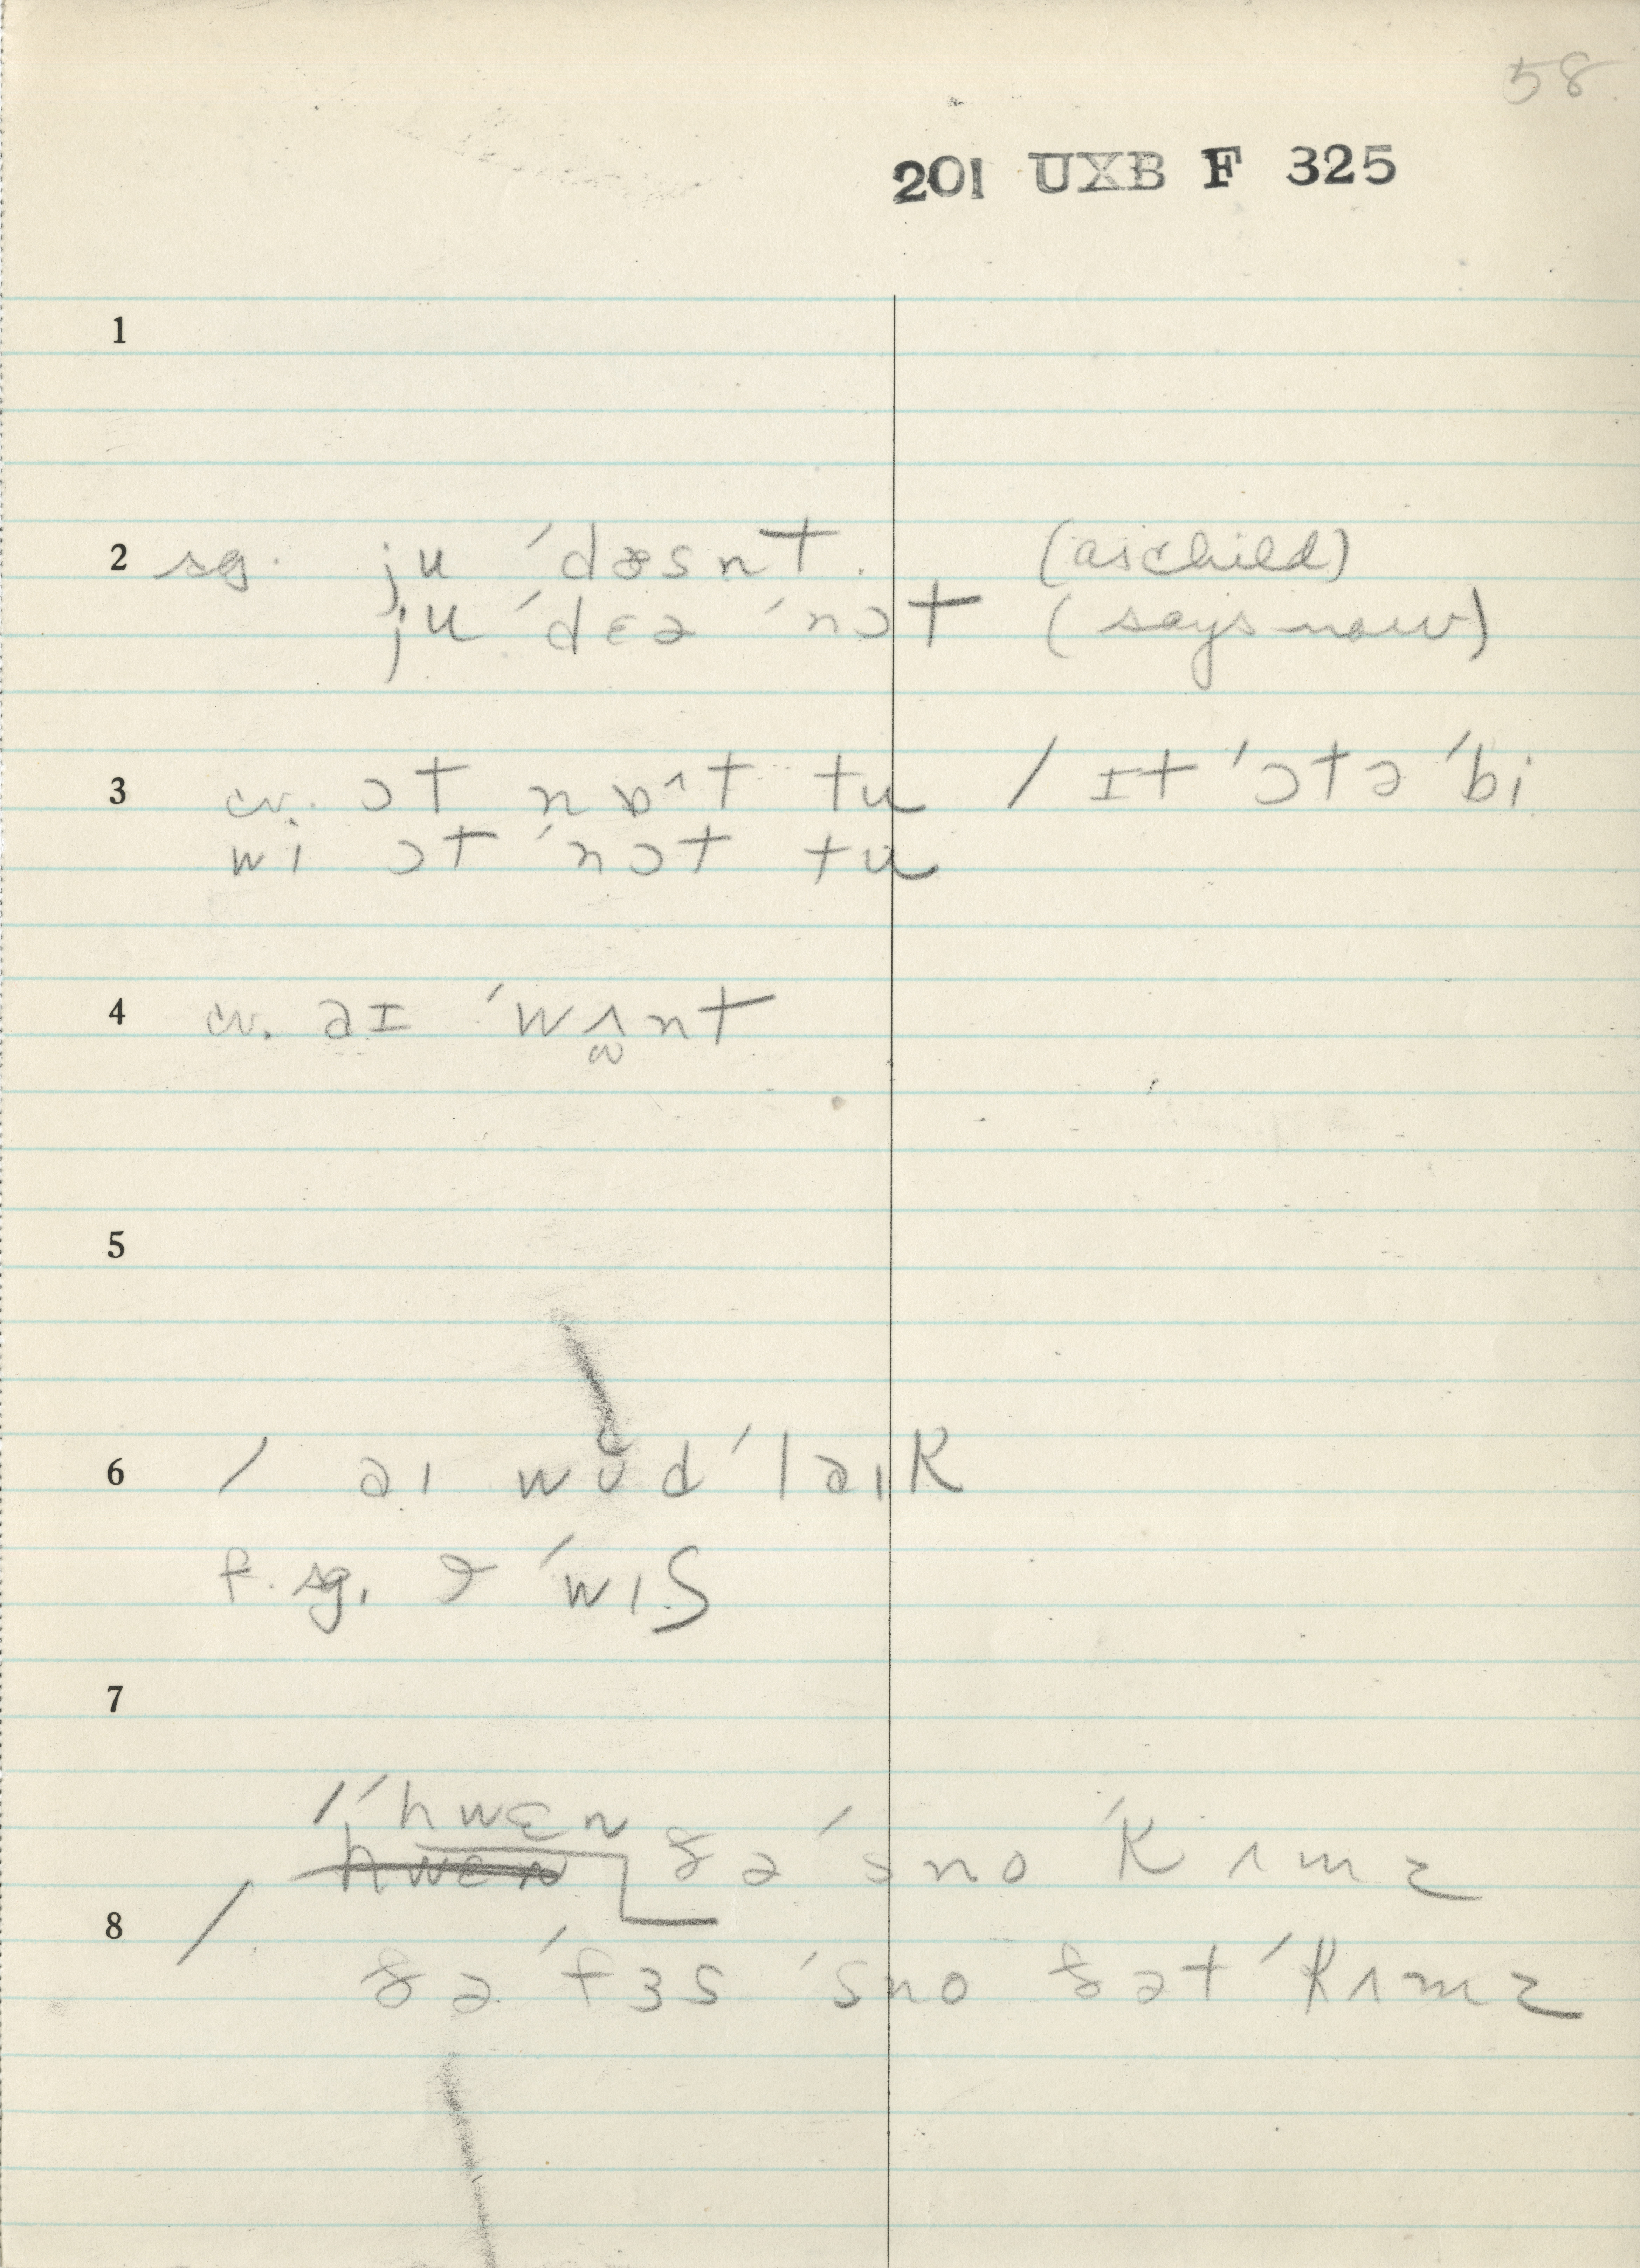 58
201 UXB F 325
1
2 sg. ju ˈdæsnt. (as child)
ju ˈdɛə ˈnɔt (says now)
3 cv. ɔt nɒ^t tu / ɪt ˈɔtə ˈbi
wi ɔt ˈnɔt tu
4 cv. əɪ ˈwʌnt
5
6 / əɪ wʊd ˈləɪk
f. sg. ə ˈwɪʃ
7
/ ˈhwɛn
hwɛn ðə ˈsno ˈkʌmz
8 /
ðə ˈfɜs ˈsno ðət ˈkʌmz